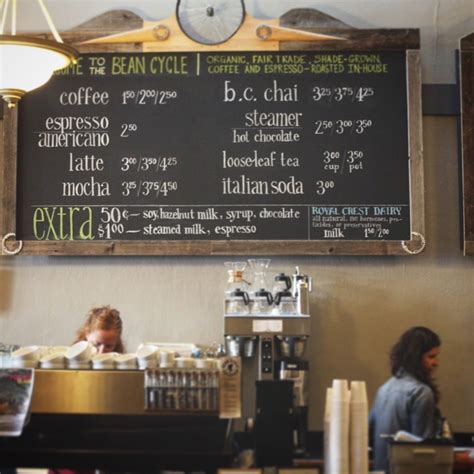 WELCOME TO THE BEAN CYCLE | ORGANIC, FAIR TRADE, SHADE-GROWN,
COFFEE AND ESPRESSO-ROASTED IN-HOUSE
coffee 1.50/2.00/2.50
espresso
americano 2.50
latte 3.00/3.50/4.00
mocha 3.25/3.75/4.50
b.c. chai 3.25/3.75/4.25
steamer
hot chocolate 2.50/3.00/3.50
loose-leaf tea 3.00 cup 3.50 pot
italian soda 3.00
extra 50¢ — soy, hazelnut milk, syrup, chocolate
$1.00 — steamed milk, espresso
ROYAL CREST DAIRY
all natural, no hormones, pesticides, or preservatives
milk 1.50/2.00